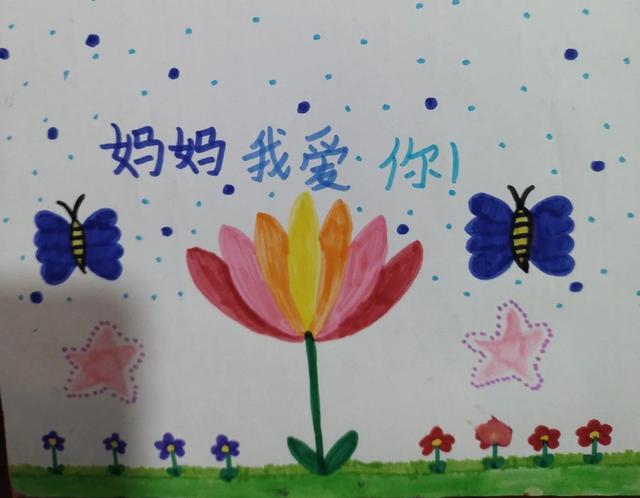 妈妈我爱你!